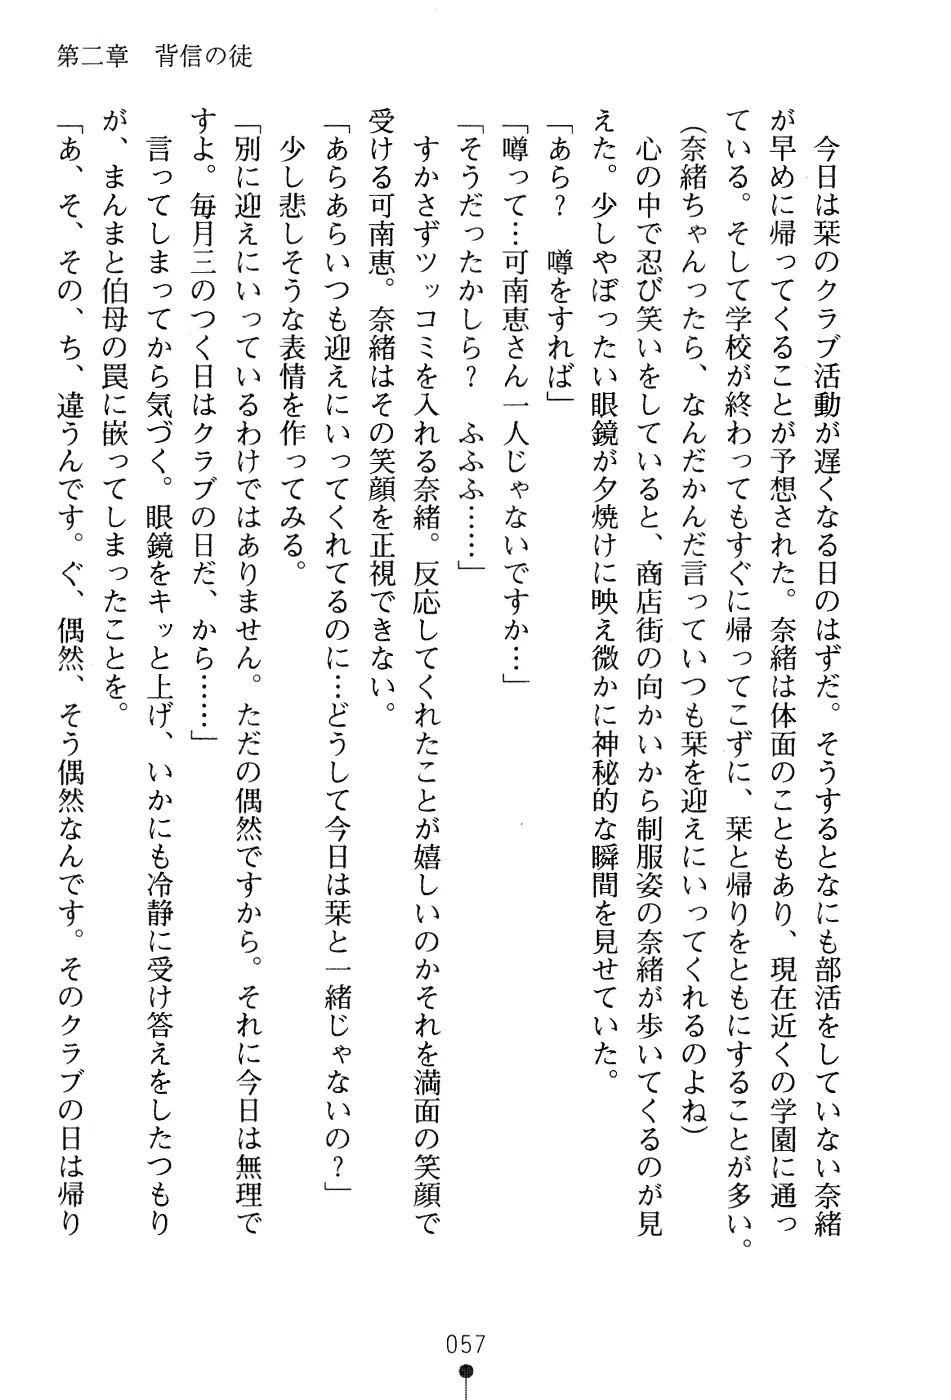 第二章　背信の徒
　今日は栞のクラブ活動が遅くなる日のはずだ。そうするとなにも部活をしていない奈緒
が早めに帰ってくることが予想された。奈緒は体面のこともあり、現在近くの学園に通っ
ている。そして学校が終わってもすぐに帰ってこずに、栞と帰りをともにすることが多い。
（奈緒ちゃんったら、なんだかんだ言っていつも栞を迎えにいってくれるのよね）
　心の中で忍び笑いをしていると、商店街の向かいから制服姿の奈緒が歩いてくるのが見
えた。少しやぼったい眼鏡が夕焼けに映え微かに神秘的な瞬間を見せていた。
「あら？　噂をすれば」
「噂って…可南恵さん一人じゃないですか…」
「そうだったかしら？　ふふふ……」
　すかさずツッコミを入れる奈緒。反応してくれたことが嬉しいのかそれを満面の笑顔で
受ける可南恵。奈緒はその笑顔を正視できない。
「あらあらいつも迎えにいってくれてるのに…どうして今日は栞と一緒じゃないの？」
　少し悲しそうな表情を作ってみる。
「別に迎えにいっているわけではありません。ただの偶然ですから。それに今日は無理で
すよ。毎月三のつく日はクラブの日だ、から……」
　言ってしまってから気づく。眼鏡をキッと上げ、いかにも冷静に受け答えをしたつもり
が、まんまと伯母の罠に嵌ってしまったことを。
「あ、そ、その、ち、違うんです。ぐ、偶然、そう偶然なんです。そのクラブの日は帰り
057